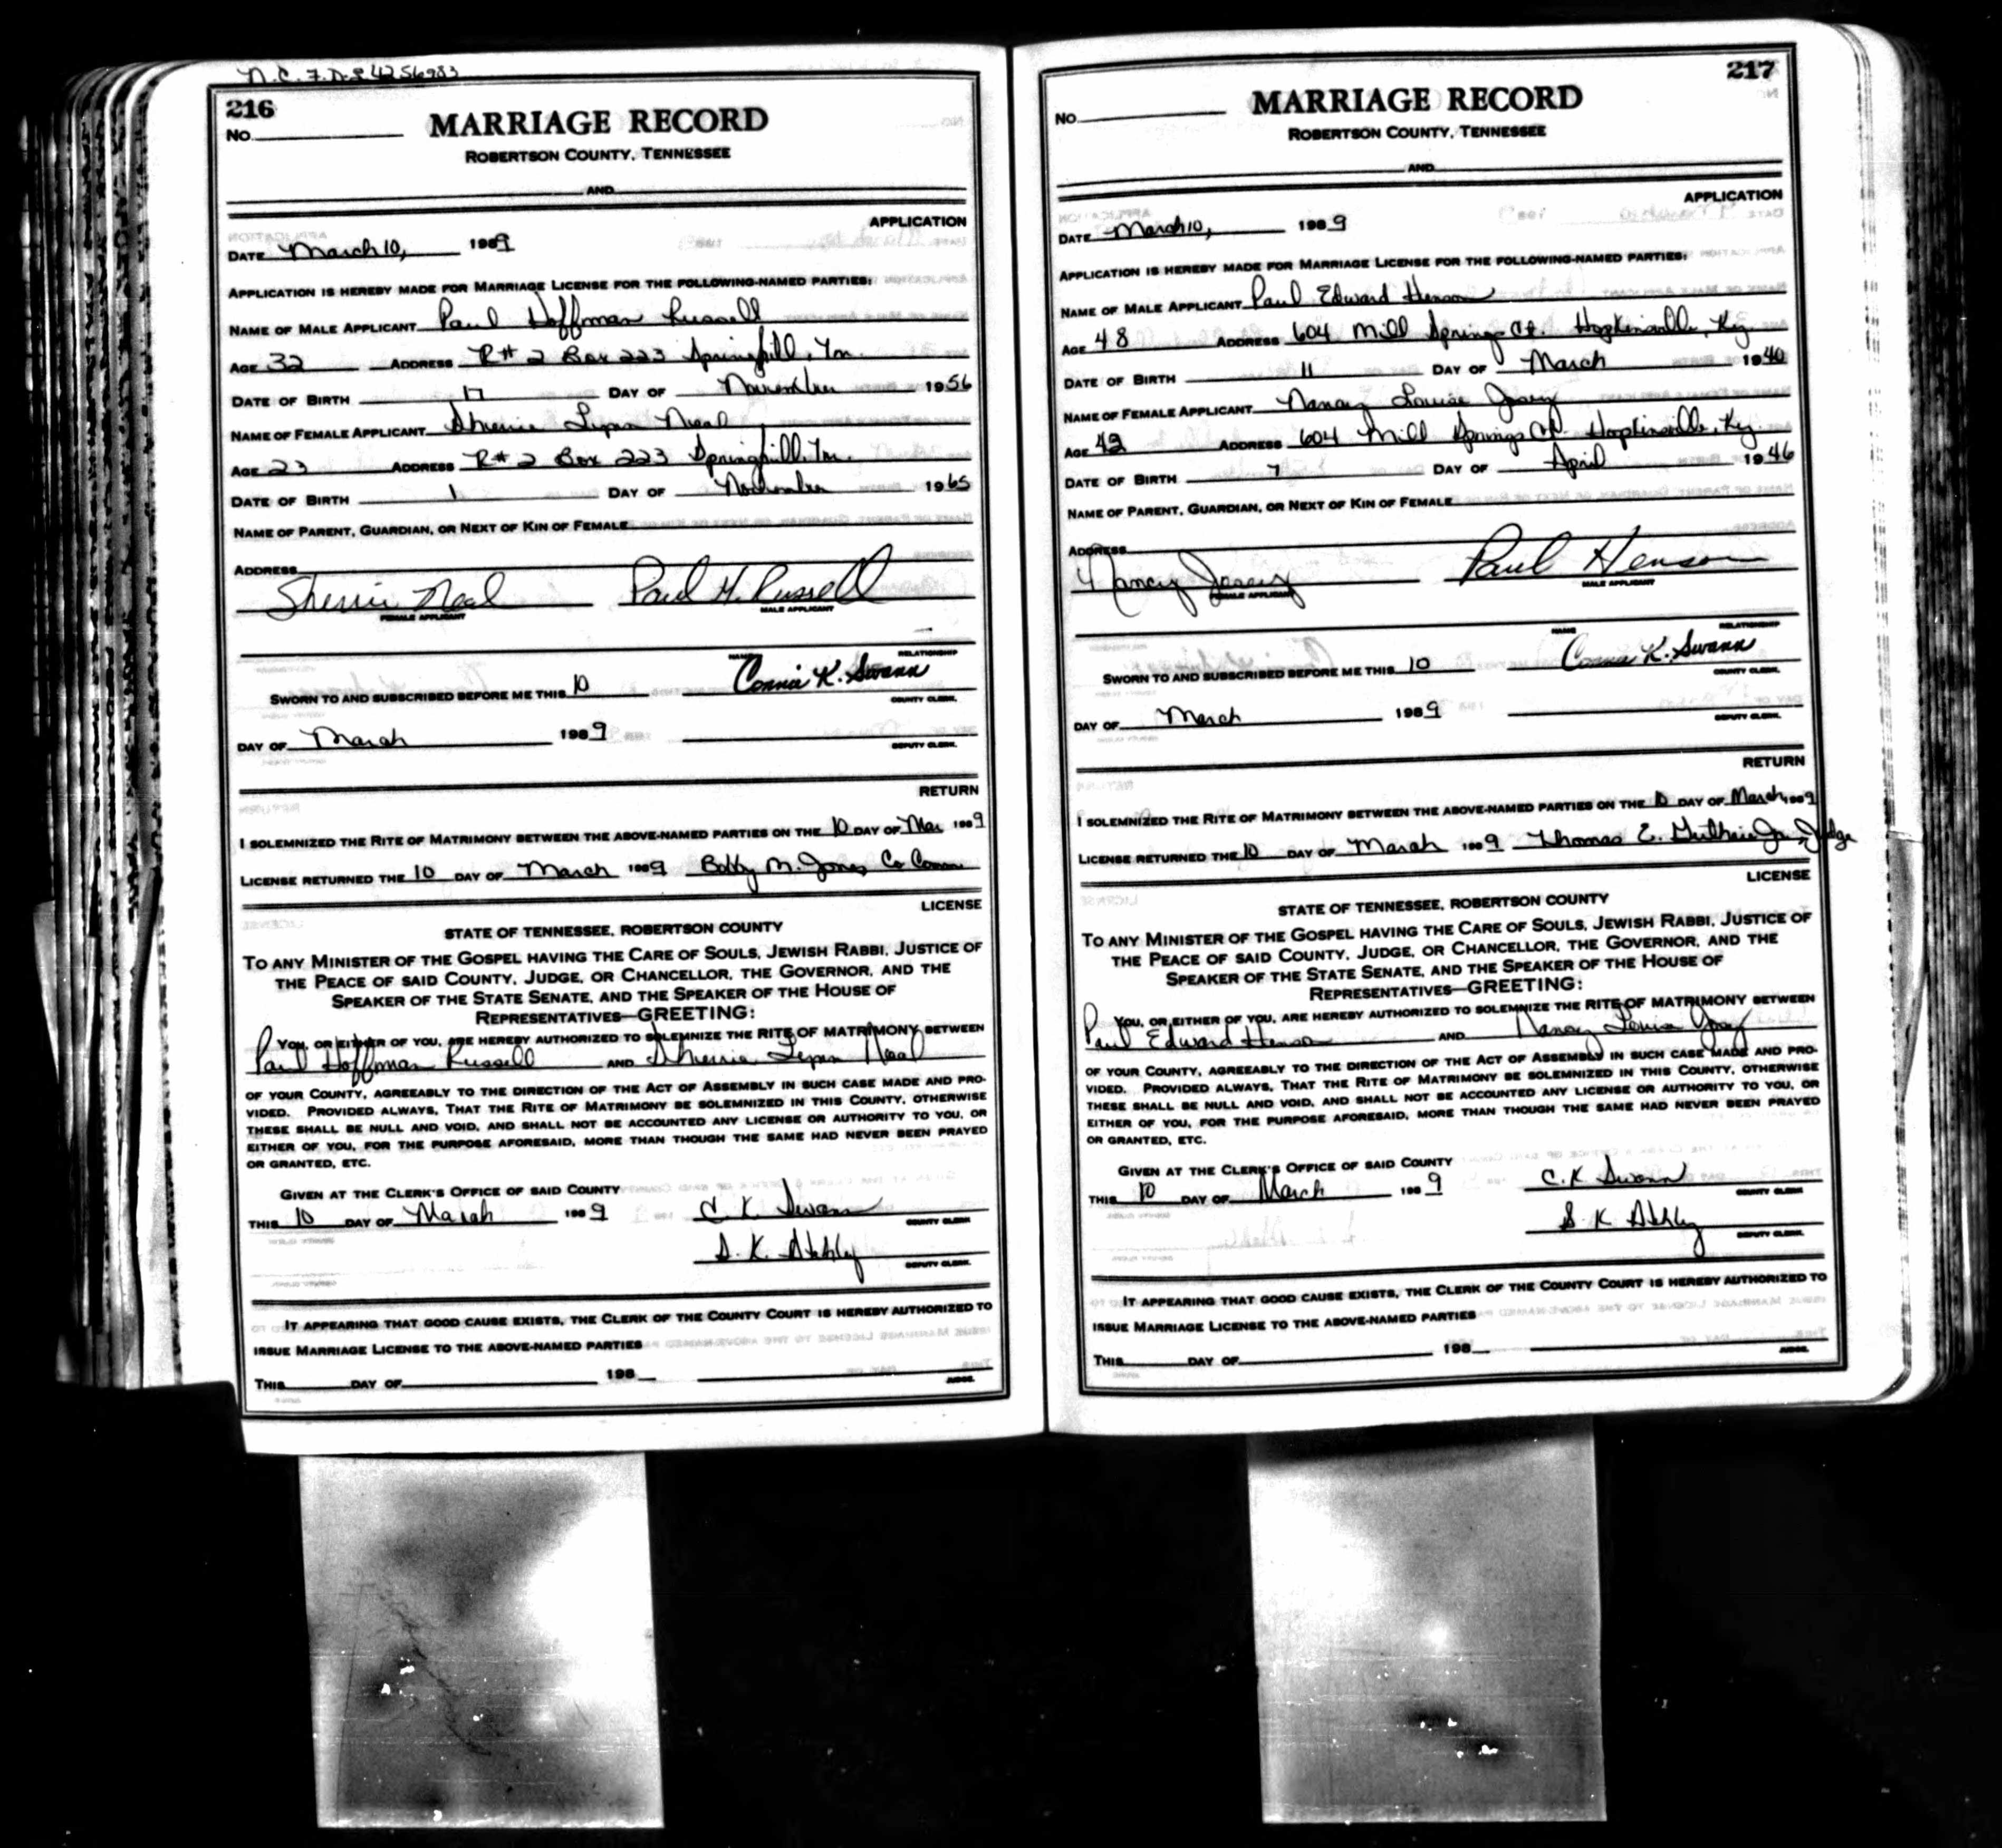 N.C. F.D.L 4256983
216
NO.
MARRIAGE RECORD
ROBERTSON COUNTY, TENNESSEE
AND
APPLICATION
DATE March 10, 1989
APPLICATION IS HEREBY MADE FOR MARRIAGE LICENSE FOR THE FOLLOWING-NAMED PARTIES:
NAME OF MALE APPLICANT Paul Hoffman Russell
AGE 32 ADDRESS R# 2 Box 223 Springhill, Tn.
DATE OF BIRTH 17 DAY OF November 1956
NAME OF FEMALE APPLICANT Sherrie Lynn Neal
AGE 23 ADDRESS R# 2 Box 223 Springhill, Tn.
DATE OF BIRTH 1 DAY OF November 1965
NAME OF PARENT, GUARDIAN, OR NEXT OF KIN OF FEMALE
ADDRESS
Sherrie Neal Paul H. Russell
FEMALE APPLICANT MALE APPLICANT
NAME RELATIONSHIP
SWORN TO AND SUBSCRIBED BEFORE ME THIS 10 Connie K. Swann
COUNTY CLERK.
DAY OF March 1989
DEPUTY CLERK.
RETURN
I SOLEMNIZED THE RITE OF MATRIMONY BETWEEN THE ABOVE-NAMED PARTIES ON THE 10 DAY OF Mar 1989
LICENSE RETURNED THE 10 DAY OF March 1989 Bobby M. Jones Co Comm
LICENSE
STATE OF TENNESSEE, ROBERTSON COUNTY
TO ANY MINISTER OF THE GOSPEL HAVING THE CARE OF SOULS, JEWISH RABBI, JUSTICE OF
THE PEACE OF SAID COUNTY, JUDGE, OR CHANCELLOR, THE GOVERNOR, AND THE
SPEAKER OF THE STATE SENATE, AND THE SPEAKER OF THE HOUSE OF
REPRESENTATIVES—GREETING:
YOU, OR EITHER OF YOU, ARE HEREBY AUTHORIZED TO SOLEMNIZE THE RITE OF MATRIMONY BETWEEN
Paul Hoffman Russell AND Sherrie Lynn Neal
OF YOUR COUNTY, AGREEABLY TO THE DIRECTION OF THE ACT OF ASSEMBLY IN SUCH CASE MADE AND PRO-
VIDED. PROVIDED ALWAYS, THAT THE RITE OF MATRIMONY BE SOLEMNIZED IN THIS COUNTY, OTHERWISE
THESE SHALL BE NULL AND VOID, AND SHALL NOT BE ACCOUNTED ANY LICENSE OR AUTHORITY TO YOU, OR
EITHER OF YOU, FOR THE PURPOSE AFORESAID, MORE THAN THOUGH THE SAME HAD NEVER BEEN PRAYED
OR GRANTED, ETC.
GIVEN AT THE CLERK'S OFFICE OF SAID COUNTY
THIS 10 DAY OF March 1989 C. K. Swann
COUNTY CLERK
S. K. Ashly
DEPUTY CLERK.
IT APPEARING THAT GOOD CAUSE EXISTS, THE CLERK OF THE COUNTY COURT IS HEREBY AUTHORIZED TO
ISSUE MARRIAGE LICENSE TO THE ABOVE-NAMED PARTIES
THIS DAY OF 198
JUDGE.
217
NO.
MARRIAGE RECORD
ROBERTSON COUNTY, TENNESSEE
AND
APPLICATION
DATE March 10, 1989
APPLICATION IS HEREBY MADE FOR MARRIAGE LICENSE FOR THE FOLLOWING-NAMED PARTIES:
NAME OF MALE APPLICANT Paul Edward Henson
AGE 48 ADDRESS 604 Mill Springs Ct. Hopkinsville, Ky.
DATE OF BIRTH 11 DAY OF March 1940
NAME OF FEMALE APPLICANT Nancy Louise Josey
AGE 42 ADDRESS 604 Mill Springs Ct. Hopkinsville, Ky.
DATE OF BIRTH 7 DAY OF April 1946
NAME OF PARENT, GUARDIAN, OR NEXT OF KIN OF FEMALE
ADDRESS
Nancy Josey Paul Henson
FEMALE APPLICANT MALE APPLICANT
NAME RELATIONSHIP
SWORN TO AND SUBSCRIBED BEFORE ME THIS 10 Connie K. Swann
COUNTY CLERK.
DAY OF March 1989
DEPUTY CLERK.
RETURN
I SOLEMNIZED THE RITE OF MATRIMONY BETWEEN THE ABOVE-NAMED PARTIES ON THE 10 DAY OF March 1989
LICENSE RETURNED THE 10 DAY OF March 1989 Thomas E. Guthrie Jr. Judge
LICENSE
STATE OF TENNESSEE, ROBERTSON COUNTY
TO ANY MINISTER OF THE GOSPEL HAVING THE CARE OF SOULS, JEWISH RABBI, JUSTICE OF
THE PEACE OF SAID COUNTY, JUDGE, OR CHANCELLOR, THE GOVERNOR, AND THE
SPEAKER OF THE STATE SENATE, AND THE SPEAKER OF THE HOUSE OF
REPRESENTATIVES—GREETING:
YOU, OR EITHER OF YOU, ARE HEREBY AUTHORIZED TO SOLEMNIZE THE RITE OF MATRIMONY BETWEEN
Paul Edward Henson AND Nancy Louise Josey
OF YOUR COUNTY, AGREEABLY TO THE DIRECTION OF THE ACT OF ASSEMBLY IN SUCH CASE MADE AND PRO-
VIDED. PROVIDED ALWAYS, THAT THE RITE OF MATRIMONY BE SOLEMNIZED IN THIS COUNTY, OTHERWISE
THESE SHALL BE NULL AND VOID, AND SHALL NOT BE ACCOUNTED ANY LICENSE OR AUTHORITY TO YOU, OR
EITHER OF YOU, FOR THE PURPOSE AFORESAID, MORE THAN THOUGH THE SAME HAD NEVER BEEN PRAYED
OR GRANTED, ETC.
GIVEN AT THE CLERK'S OFFICE OF SAID COUNTY
THIS 10 DAY OF March 1989 C. K. Swann
COUNTY CLERK
S. K. Ashly
DEPUTY CLERK.
IT APPEARING THAT GOOD CAUSE EXISTS, THE CLERK OF THE COUNTY COURT IS HEREBY AUTHORIZED TO
ISSUE MARRIAGE LICENSE TO THE ABOVE-NAMED PARTIES
THIS DAY OF 198
JUDGE.